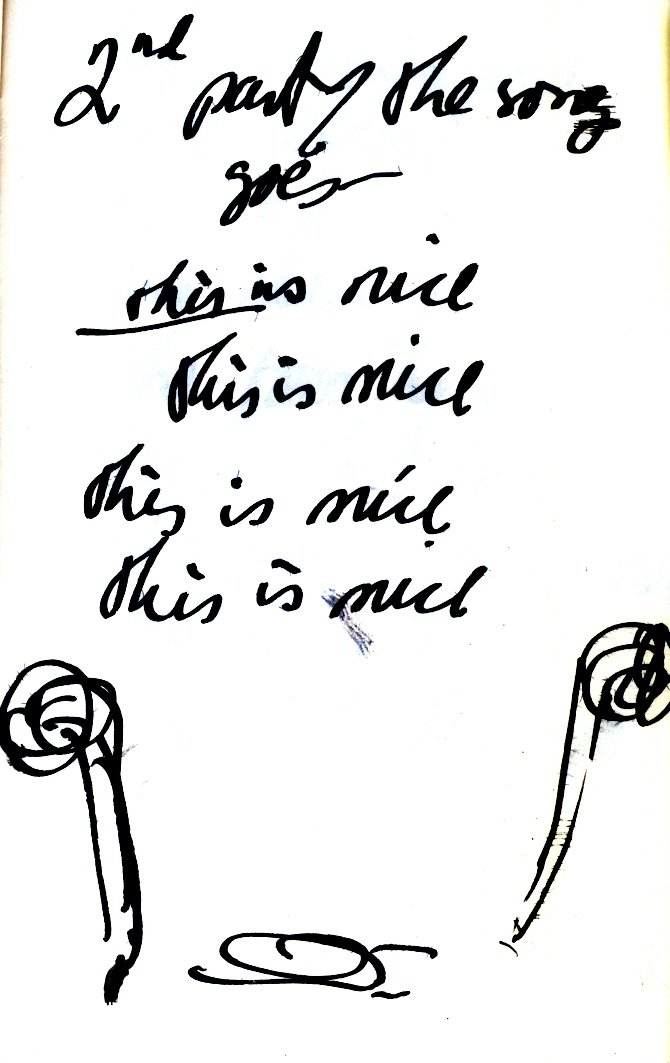 2nd part, the song
goes
this is nice
this is nice
this is nice
this is nice